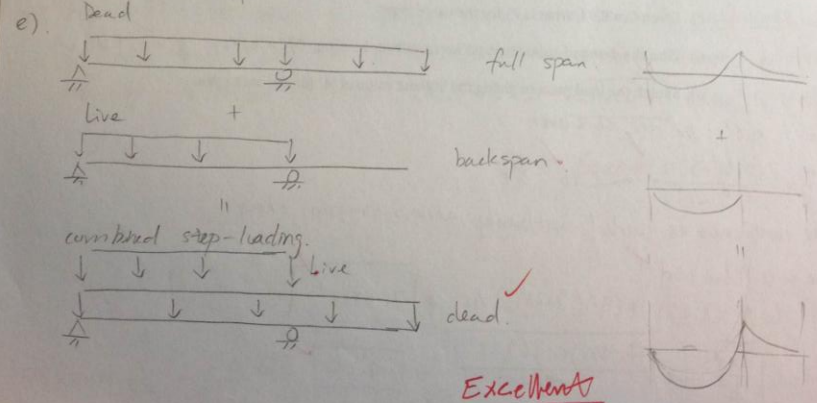 e).
Dead
full span.
Live +
backspan.
=
combined step-loading.
Live
dead.
+
=
Excellent